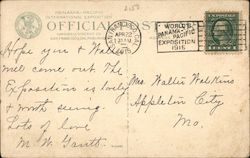 2150
PANAMA-PACIFIC
INTERNATIONAL EXPOSITION
OFFICIAL POST
APR 22
1915
WORLD'S
PANAMA-
PACIFIC
EXPOSITION
1915
Hope you & Walter
will come out. The
Exposition is lovely
& worth seeing.
Lots of love
M. W. Gantt
Mrs. Walter Watkins
Appleton City
Mo.